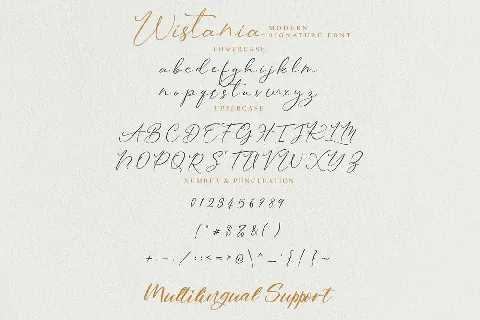 Wistania MODERN SIGNATURE FONT
LOWERCASE
a b c d e f g h i j k l m
n o p q r s t u v w x y z
UPPERCASE
A B C D E F G H I J K L M
N O P Q R S T U V W X Y Z
NUMBET & PUNCTUATION
0 1 2 3 4 5 6 7 8 9
! " # $ % & ( )
+ , - . / : ; < = > @ \ ^ _ ` { | } ~
Multilingual Support